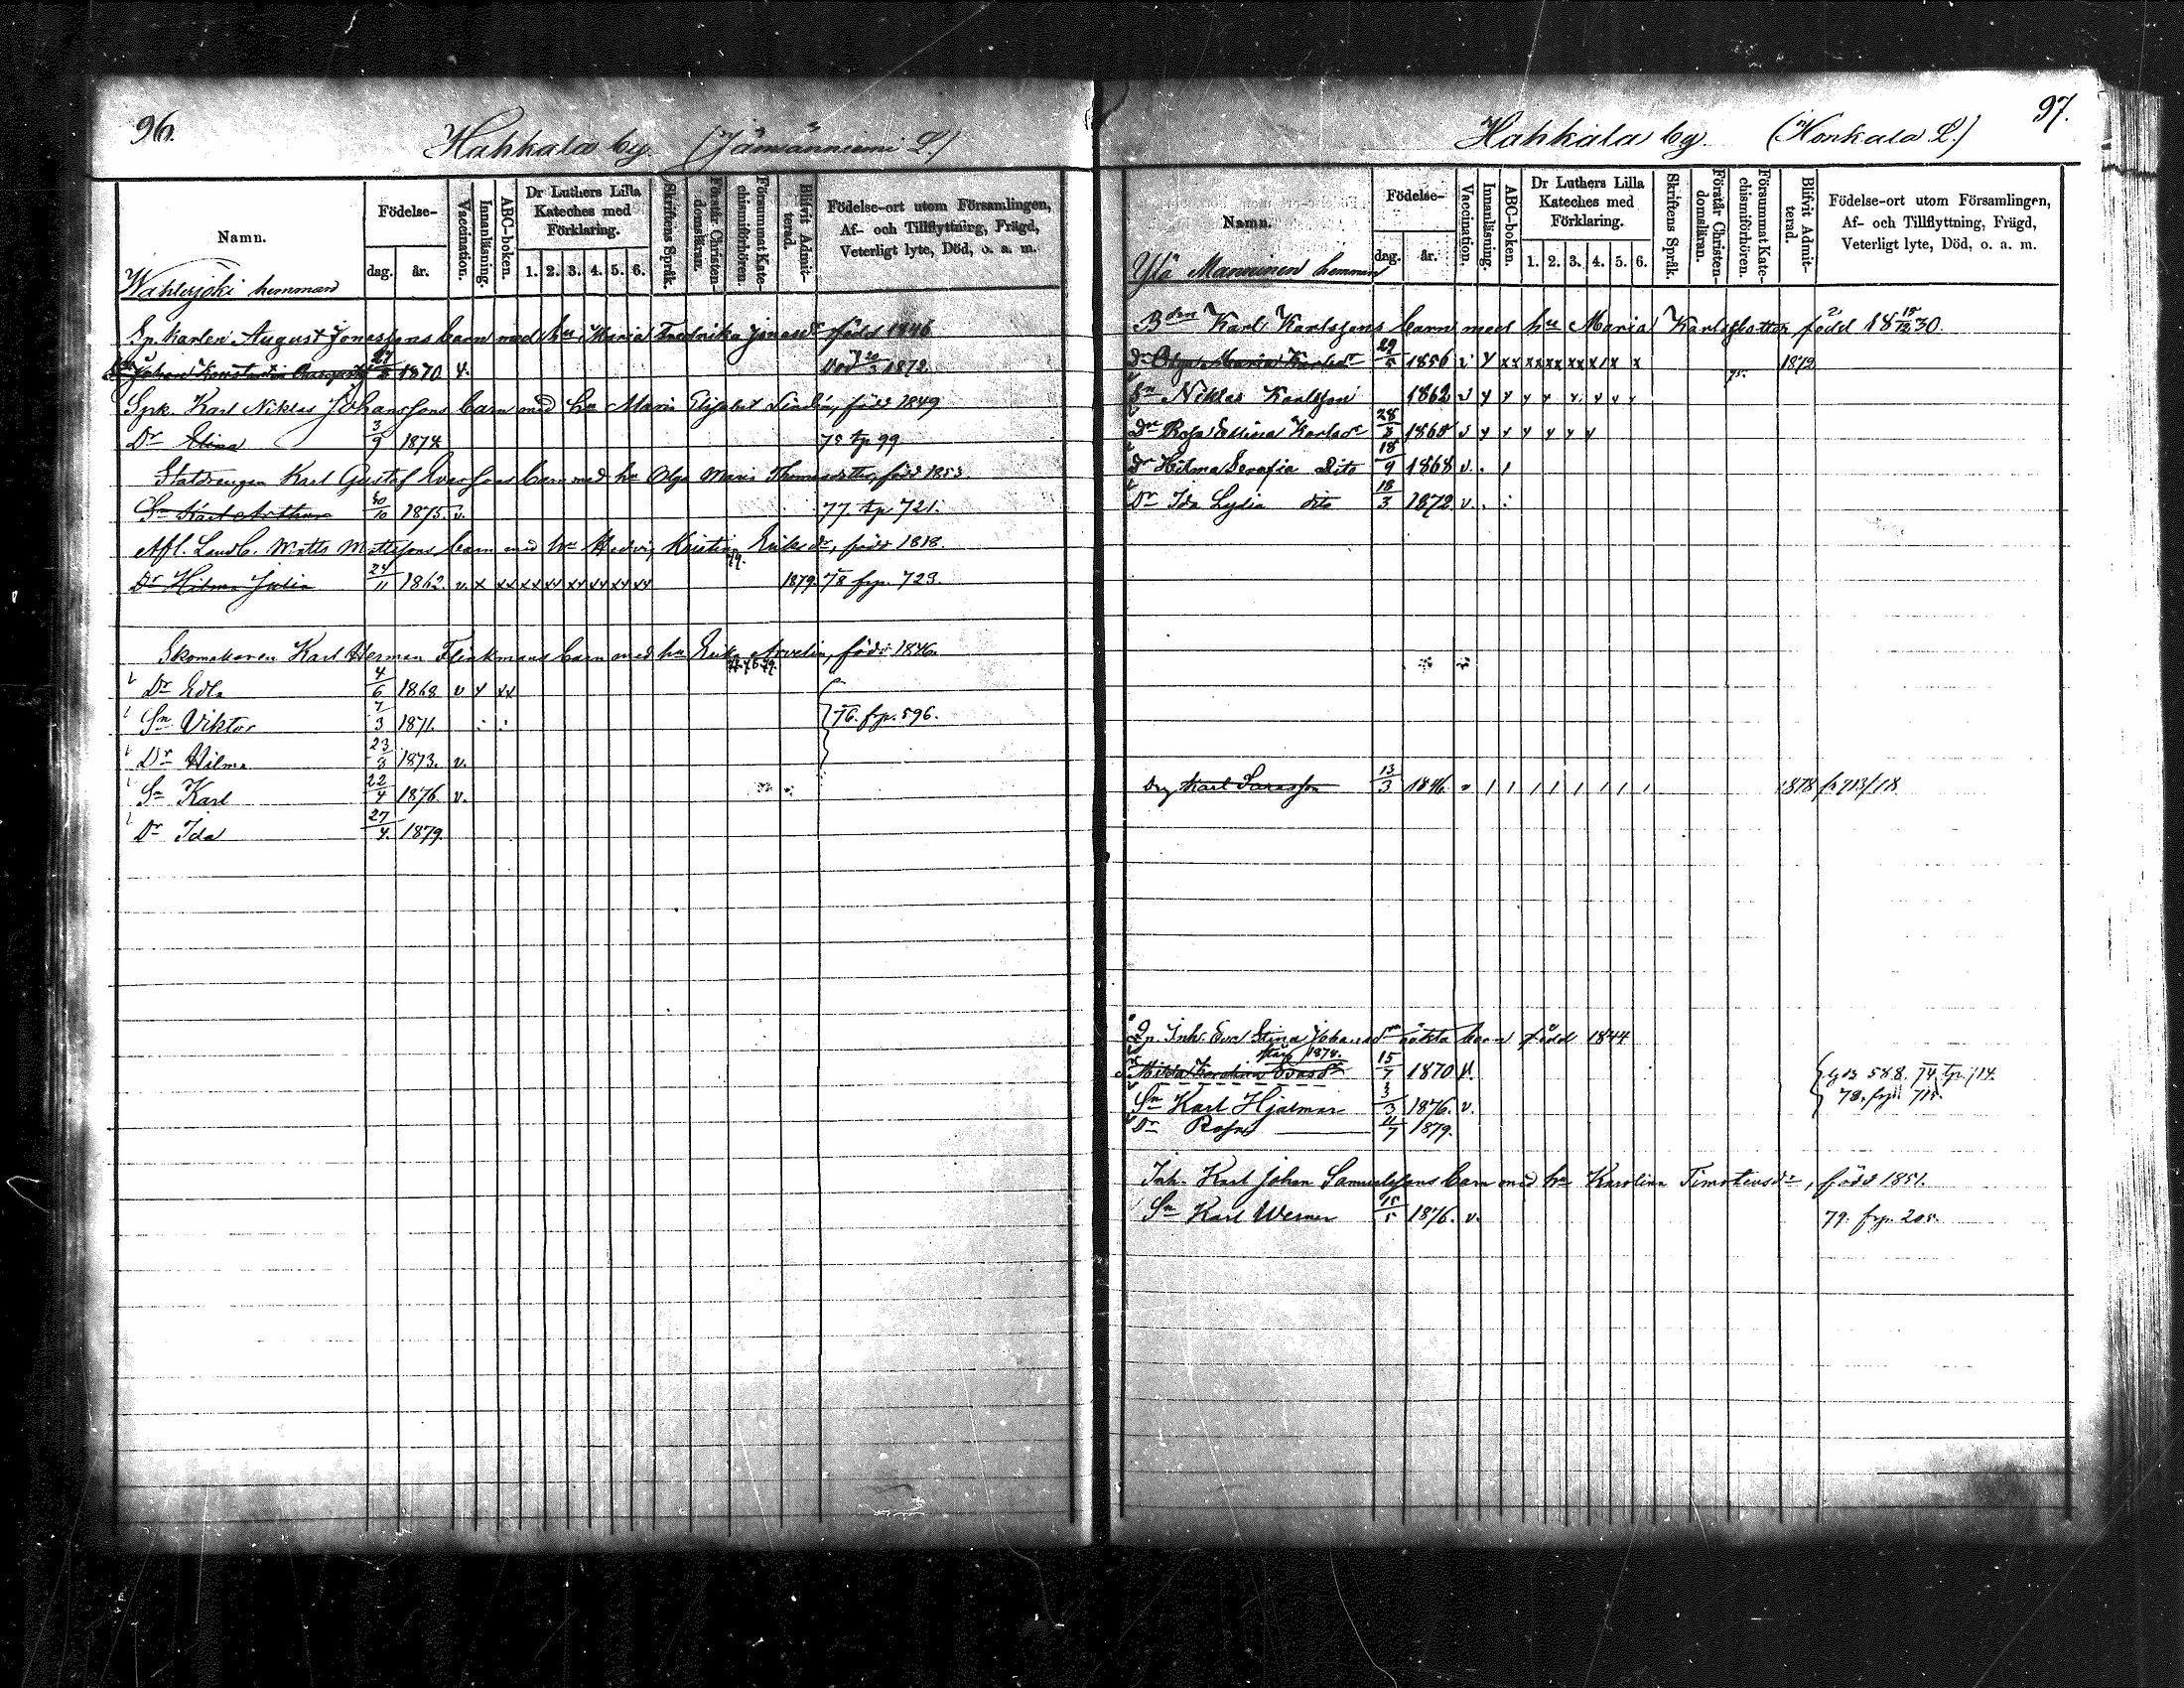 96.
Hahkala by. (Jämsänniemi L.)
Namn.
Födelse-
dag.
år.
Vaccination.
Innanläsning.
ABC-boken.
Dr Luthers Lilla Kateches med Förklaring.
1. 2. 3. 4. 5. 6.
Skriftens Språk.
Förstår Christendomsläran.
Försummat Katechismiförhören.
Blifvit Admitterad.
Födelse-ort utom Församlingen, Af- och Tillflyttning, Frägd, Veterligt lyte, Död, o. a. m.
hemman
Sp. karlen August Jonassons barn med hu Maria Fredrika Jonasdr född 1846
Johan Konstantin 27 1870 v. Död 1872
Spk. Karl Niklas Johanssons barn med hu Maria Elisabet Lindén, född 1849
Dr Elina 3/9 1874 75 tp 99
Statdrengen Karl Gustaf barn med hu Olga Maria Thomasdotter, född 1853.
Sn Karl Arthur 30/10 1875. v. 77. tp 721.
Afl. Landb. Matts Mattssons barn med hu Hedvig Kristina Eriksdr, född 1818.
79.
Dr Hilma Julia 24/11 1862. v. x xx xx xx xx xx xx xx 1879. 78 frp. 723.
Skomakaren Karl Herman Flinkmans barn med hu Erika Arvelin, född 1846.
Dr Edla 4/6 1868 v x xx
Sn Viktor 7/3 1871. : : 76. frp. 596.
Dr Hilma 23/3 1873. v.
Sn Karl 22/4 1876. v.
Dr Ida 27/4. 1879.
97.
Hahkala by. (Honkala L.)
Namn.
Födelse-
dag.
år.
Vaccination.
Innanläsning.
ABC-boken.
Dr Luthers Lilla Kateches med Förklaring.
1. 2. 3. 4. 5. 6.
Skriftens Språk.
Förstår Christendomsläran.
Försummat Katechismiförhören.
Blifvit Admitterad.
Födelse-ort utom Församlingen, Af- och Tillflyttning, Frägd, Veterligt lyte, Död, o. a. m.
Ylä Manninen hemman
Bden Karl Karlssons barn med hu Maria Karlsdotter född 18 15/12 30.
Dr Olga Maria Karlsdr 29/5 1856 v y xx xx xx xx x x 75. 1872
Sn Niklas Karlsson 1862 v y y y y y y y
Dr Rosa Karlsdr 28/8 1865 v y y y y y y
Dr Hilma Serafia Dito 18/9 1868 v.
Dr Ida Lydia dito 18/3 1872 v. . :
Drg Karl 13/3 1846. 1878 fr 713/18
Inh. Eva Stina oäkta barn född 1844
1874.
15/7 1870 v. 588. 74 tp. 714.
Sn Karl Hjalmar 3/3 1876. v. 78. frp 715.
Dr Rosa 11/7 1879.
Inh. Karl Johan Samuelssons barn med hu Karolina Timoteusdr, född 1851.
Sn Karl Werner 15/5 1876. v. 79. frp. 205.